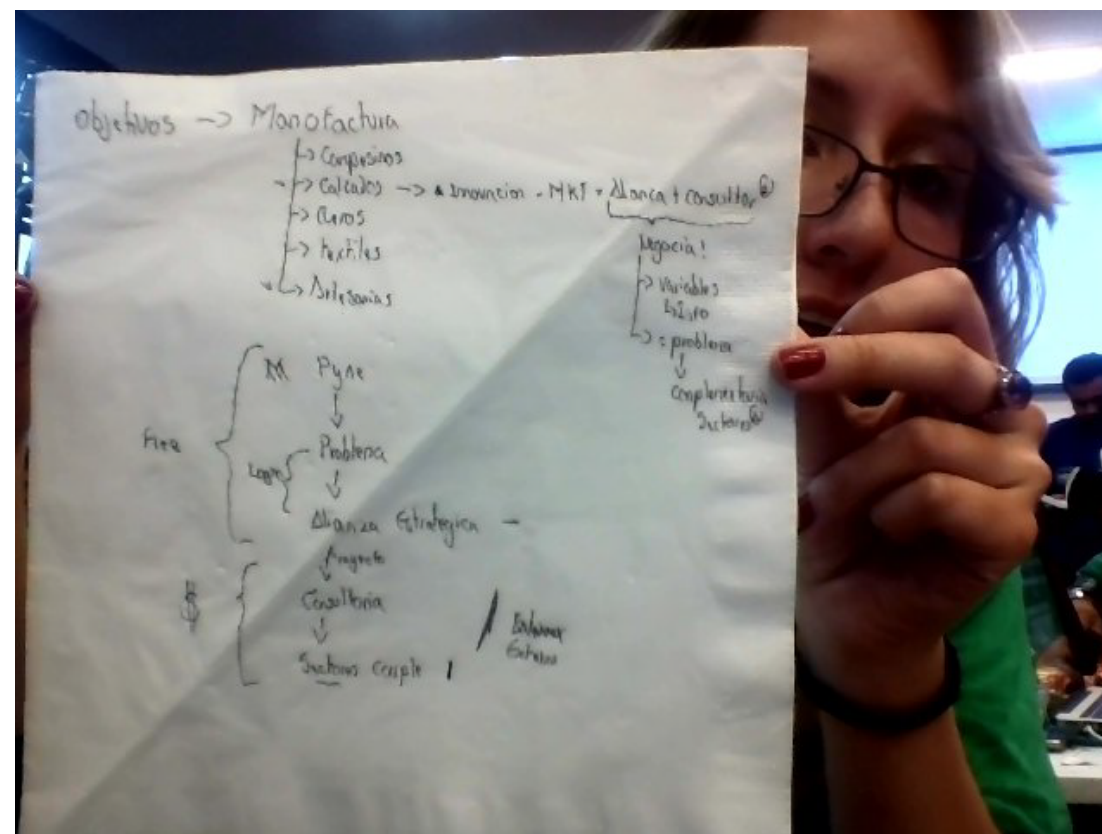 Objetivos -> Manofactura
-> Campesinos
-> Calzados -> Innovacion - MKT - Alianza + consultor
-> Cueros
-> textiles
-> Artesanias
Negocia!
-> Variables
-> : problema
Complementaria
Sectores
M Pyme
Free
Problema
Logro
Alianza Estrategica -
Proyecto
$
Consultoria
Sectores comple